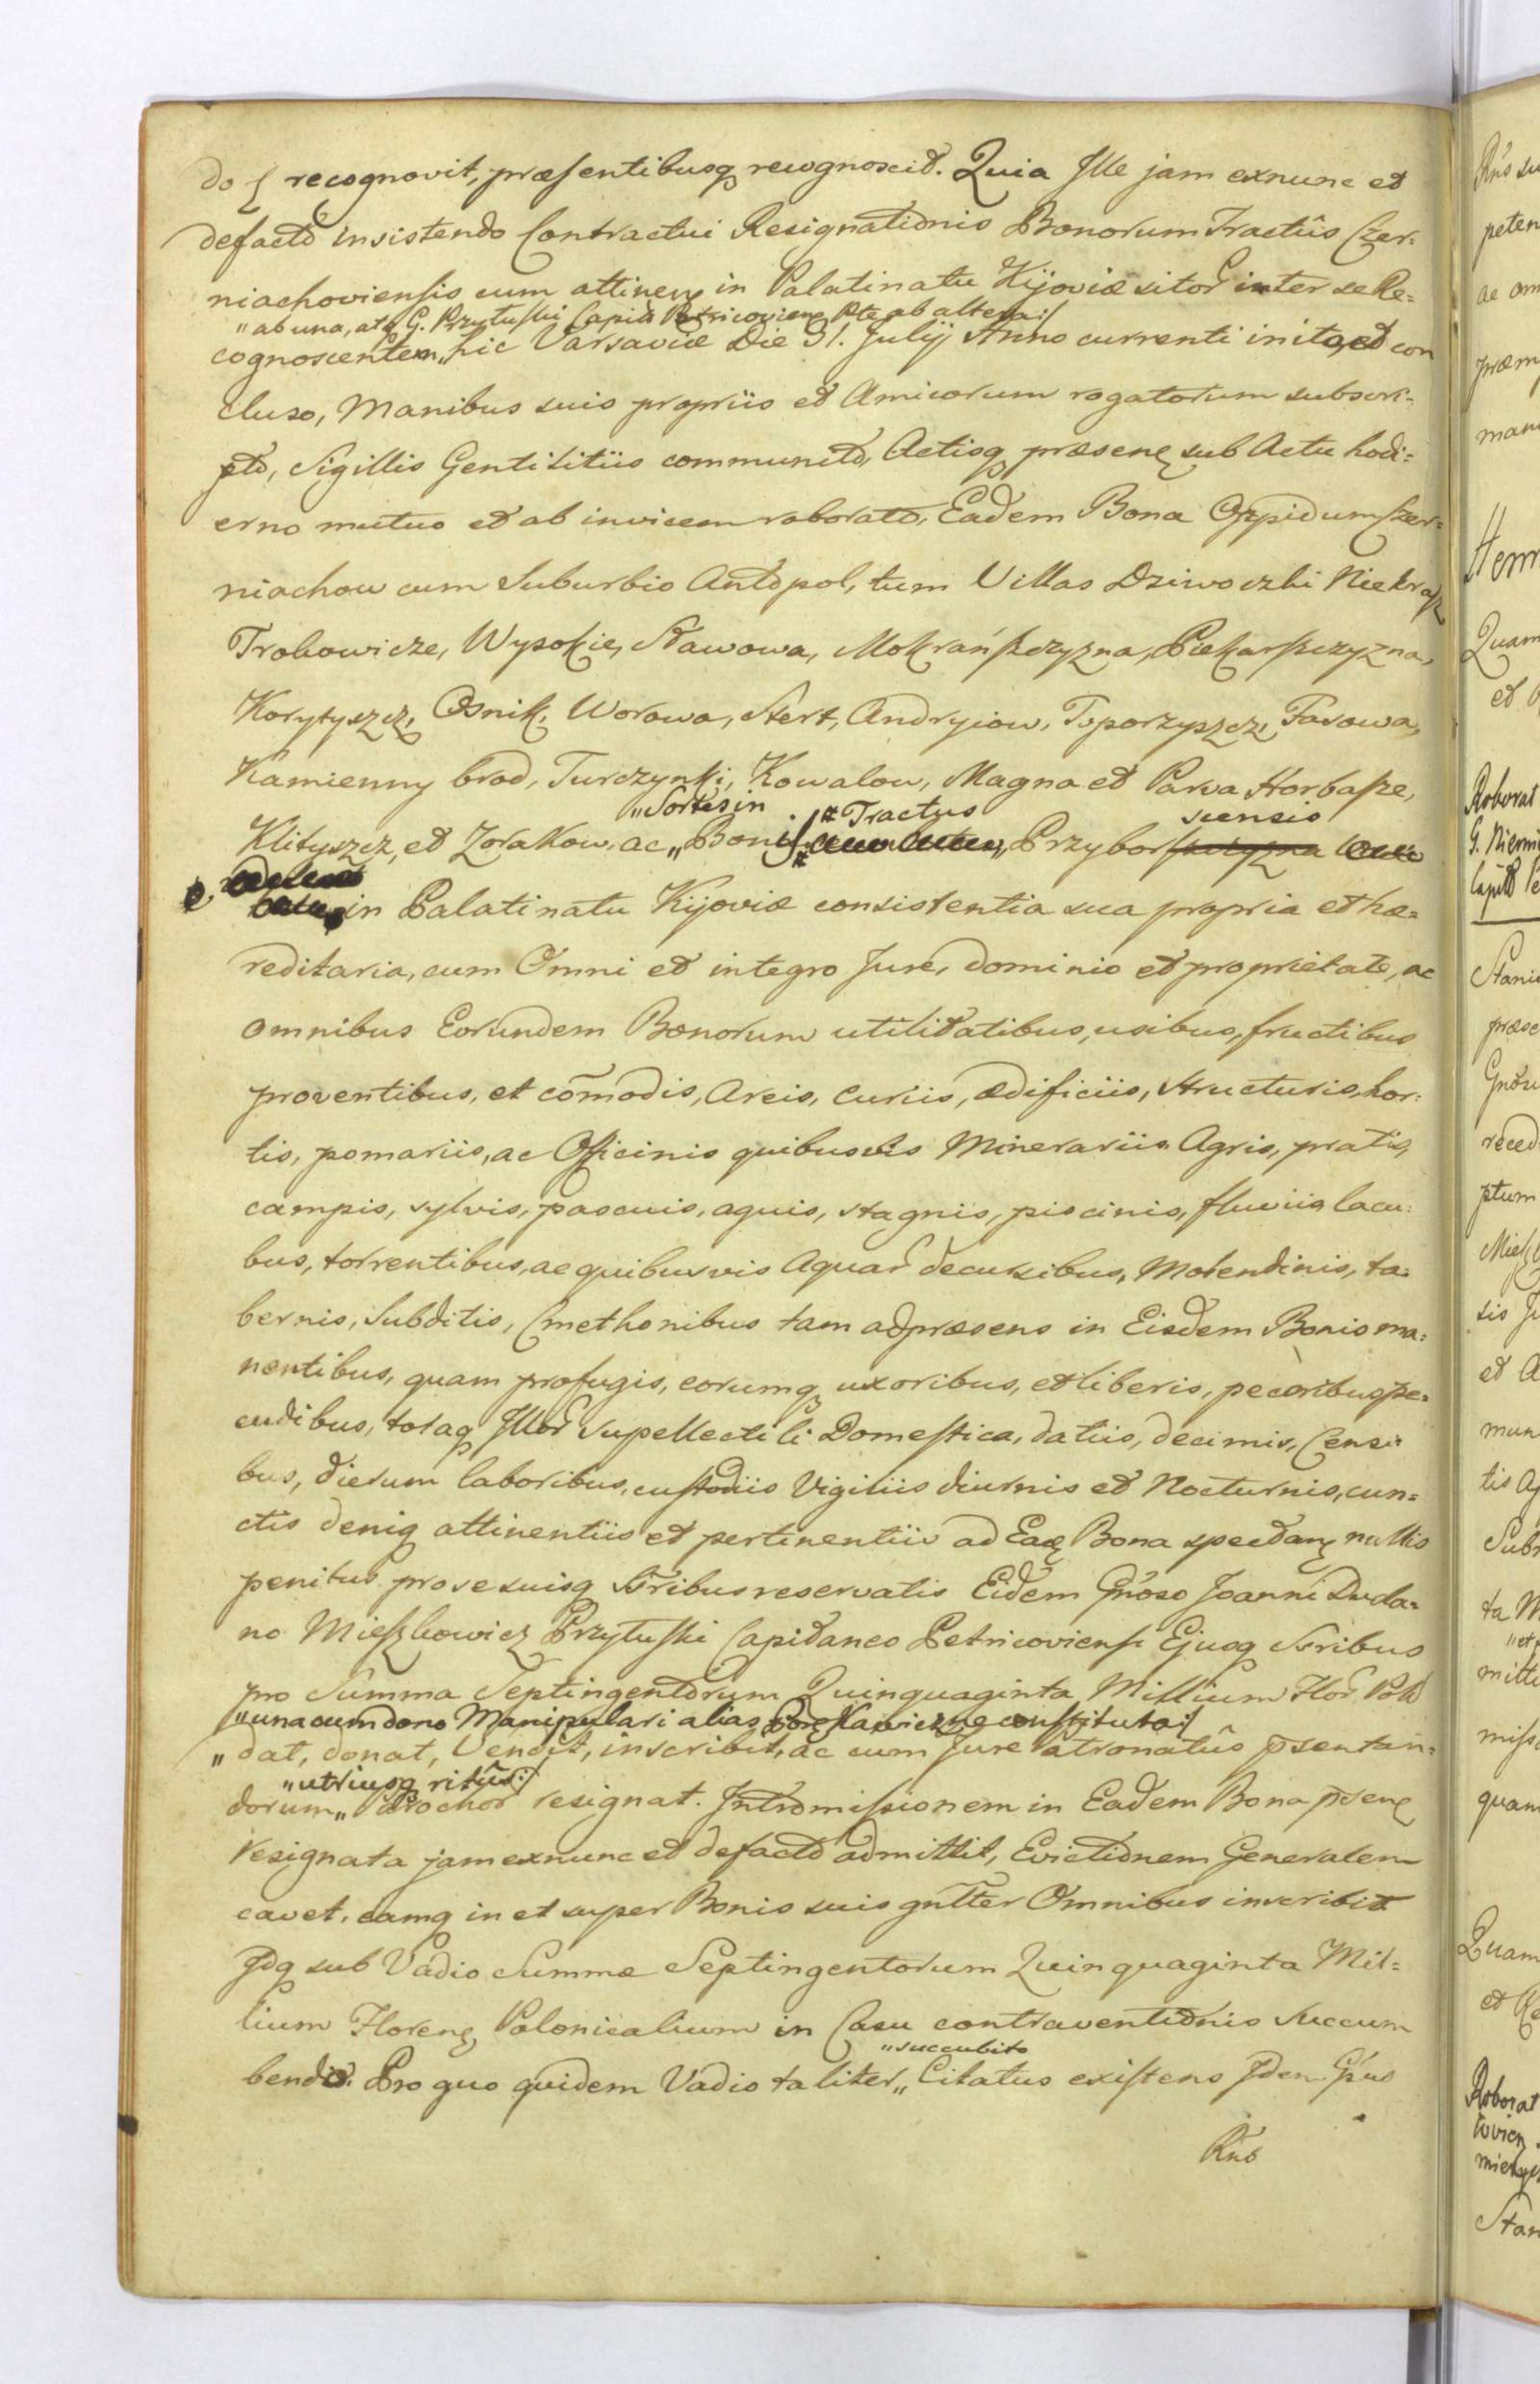 do recognovit, præsentibusq recognoscit. Quia Ille jam exnunc et
defacto insistendo Contractui Resignationis Bonorum Tractûs Czer-
niachoviensis cum attinen in Palatinatu Kijoviæ sitor inter se Re=
"ab una, atq G. Przyłuski Capit Petricovien Pte ab altera:/
cognoscentem" hic Varsaviæ Die 31. Julij Anno currenti inito, et con
cluso, Manibus suis propriis et Amicorum rogatorum subscri=
pto, Sigillis Gentilitiis communito, Actisq præsen sub Actu hodi=
erno mutuo et ab invicem roborato, Eadem Bona Oppidum Czer=
niachow cum Suburbio Antopol, tum Villas Dziwoczki Niekrasz
Trokowicze, Wysokie, Stawowa, Mokrańszczyzna, Piekarszczyzna,
Korytyszcz, Osnik, Worowa, Stert, Andryiow, Toporzyszcz, Fasowa,
Kamienny brod, Turczynki, Kowalow, Magna et Parva Horbasze,
"Sortes in # Tractus scensis
Klityszcz, et Zorakow, ac "Bonis Przybor
in Palatinatu Kijoviæ consistentia sua propria et hæ=
reditaria, cum Omni et integro Jure, dominio et proprietate, ac
omnibus Eorundem Bonorum utilitatibus, usibus, fructibus
proventibus, et com̃odis, Areis, Curiis, ædificiis, structuris, hor=
tis, pomariis, ac Officinis quibusvis Minerariis Agris, pratis,
campis, sylvis, pascuis, aquis, stagnis, piscinis, fluviis lacu=
bus, torrentibus, ac quibusvis Aquar decursibus, Molendinis, ta=
bernis, Subditis, Cmethonibus tam adpræsens in Eisdem Bonis ma=
nentibus, quam profugis, eorumq uxoribus, et liberis, pecoribus pe=
cudibus, totaq Illor supellectili Domestica, datiis, decimis, Censi=
bus, dierum laboribus, custodiis Vigiliis diurnis et Nocturnis, cun=
ctis deniq attinentiis et pertinentiis ad Ea Bona spectan nullis
penitus pro se suisq Sŕribus reservatis Eidem Gñoso Joanni Dukla=
no Mieszkowicz Przyłuski Capitaneo Petricoviensi Ejusq Sŕribus
pro Summa Septingentorum Quinquaginta Millium Flor Pol
"una cum dono Manipulari alias constituto:/
"dat, donat, Vendit, inscribit, ac cum Jure Patronatûs p̃sentan=
"utriusq ritûs:/
dorum" Parochor resignat. Intromissionem in Eadem Bona p̃sen
resignata jam exnunc et defacto admittit, Evictionem Generalem
cavet, eamq in et super Bonis suis gñlter Omnibus inscribit
Idq sub Vadio Summæ Septingentorum Quinquaginta Mil=
lium Floren Polonicalium in Casu contraventionis succum
"succubito
bendo. Pro quo quidem Vadio taliter" Citatus existens Idem Gñus
Rñs